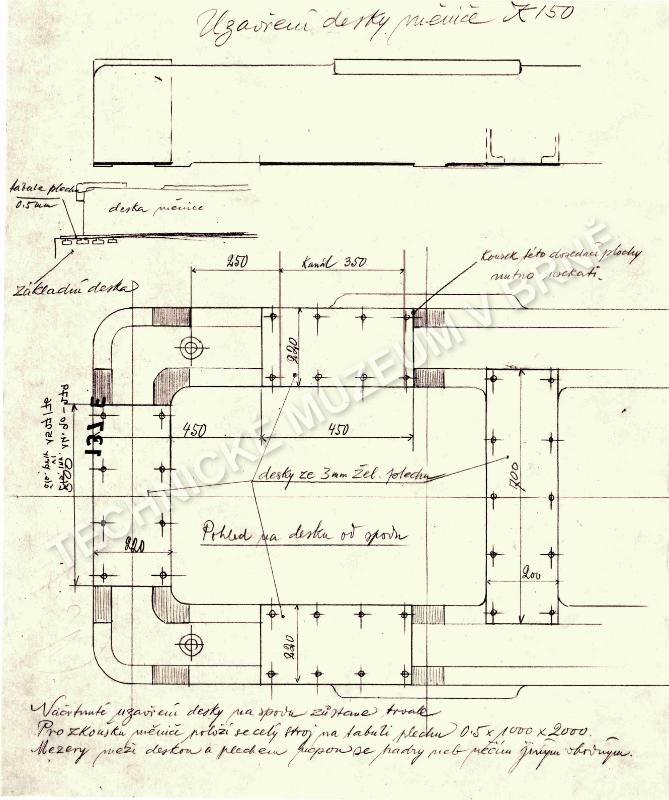 Uzavření desky měniče K 150
tabule plechu
0.5 mm
deska měniče
Základní deska
250
Kanál 350
Kousek této dosedací plochy
nutno usekati.
220
450
450
700
desky ze 3mm žel. plechu
Pohled na desku od spodu
220
200
220
TECHNICKÉ MUZEUM V BRNĚ
Náčrtnuté uzavření desky na spodu zůstane trvale
Pro zkoušku měniče položí se celý stroj na tabuli plechu 0.5 x 1000 x 2000.
Mezery mezi deskou a plechem ucpou se hadry neb něčím jiným vhodným.